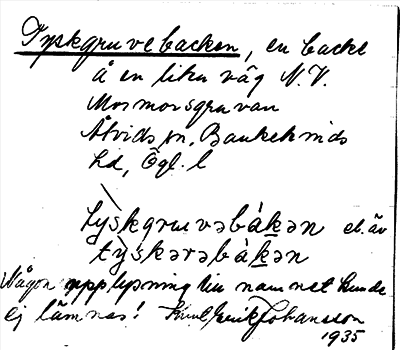 Tyskgruvebacken, en backe
å en liten väg N.V.
Mormorsgruvan
Åtvids sn, Bankekinds
hd, Ögl. l
tỳskgruvəbàḵən el. äv
tỳskərəbàḵən
Någon upplysning om namnet kunde
ej lämnas! Erik Johansson
1935